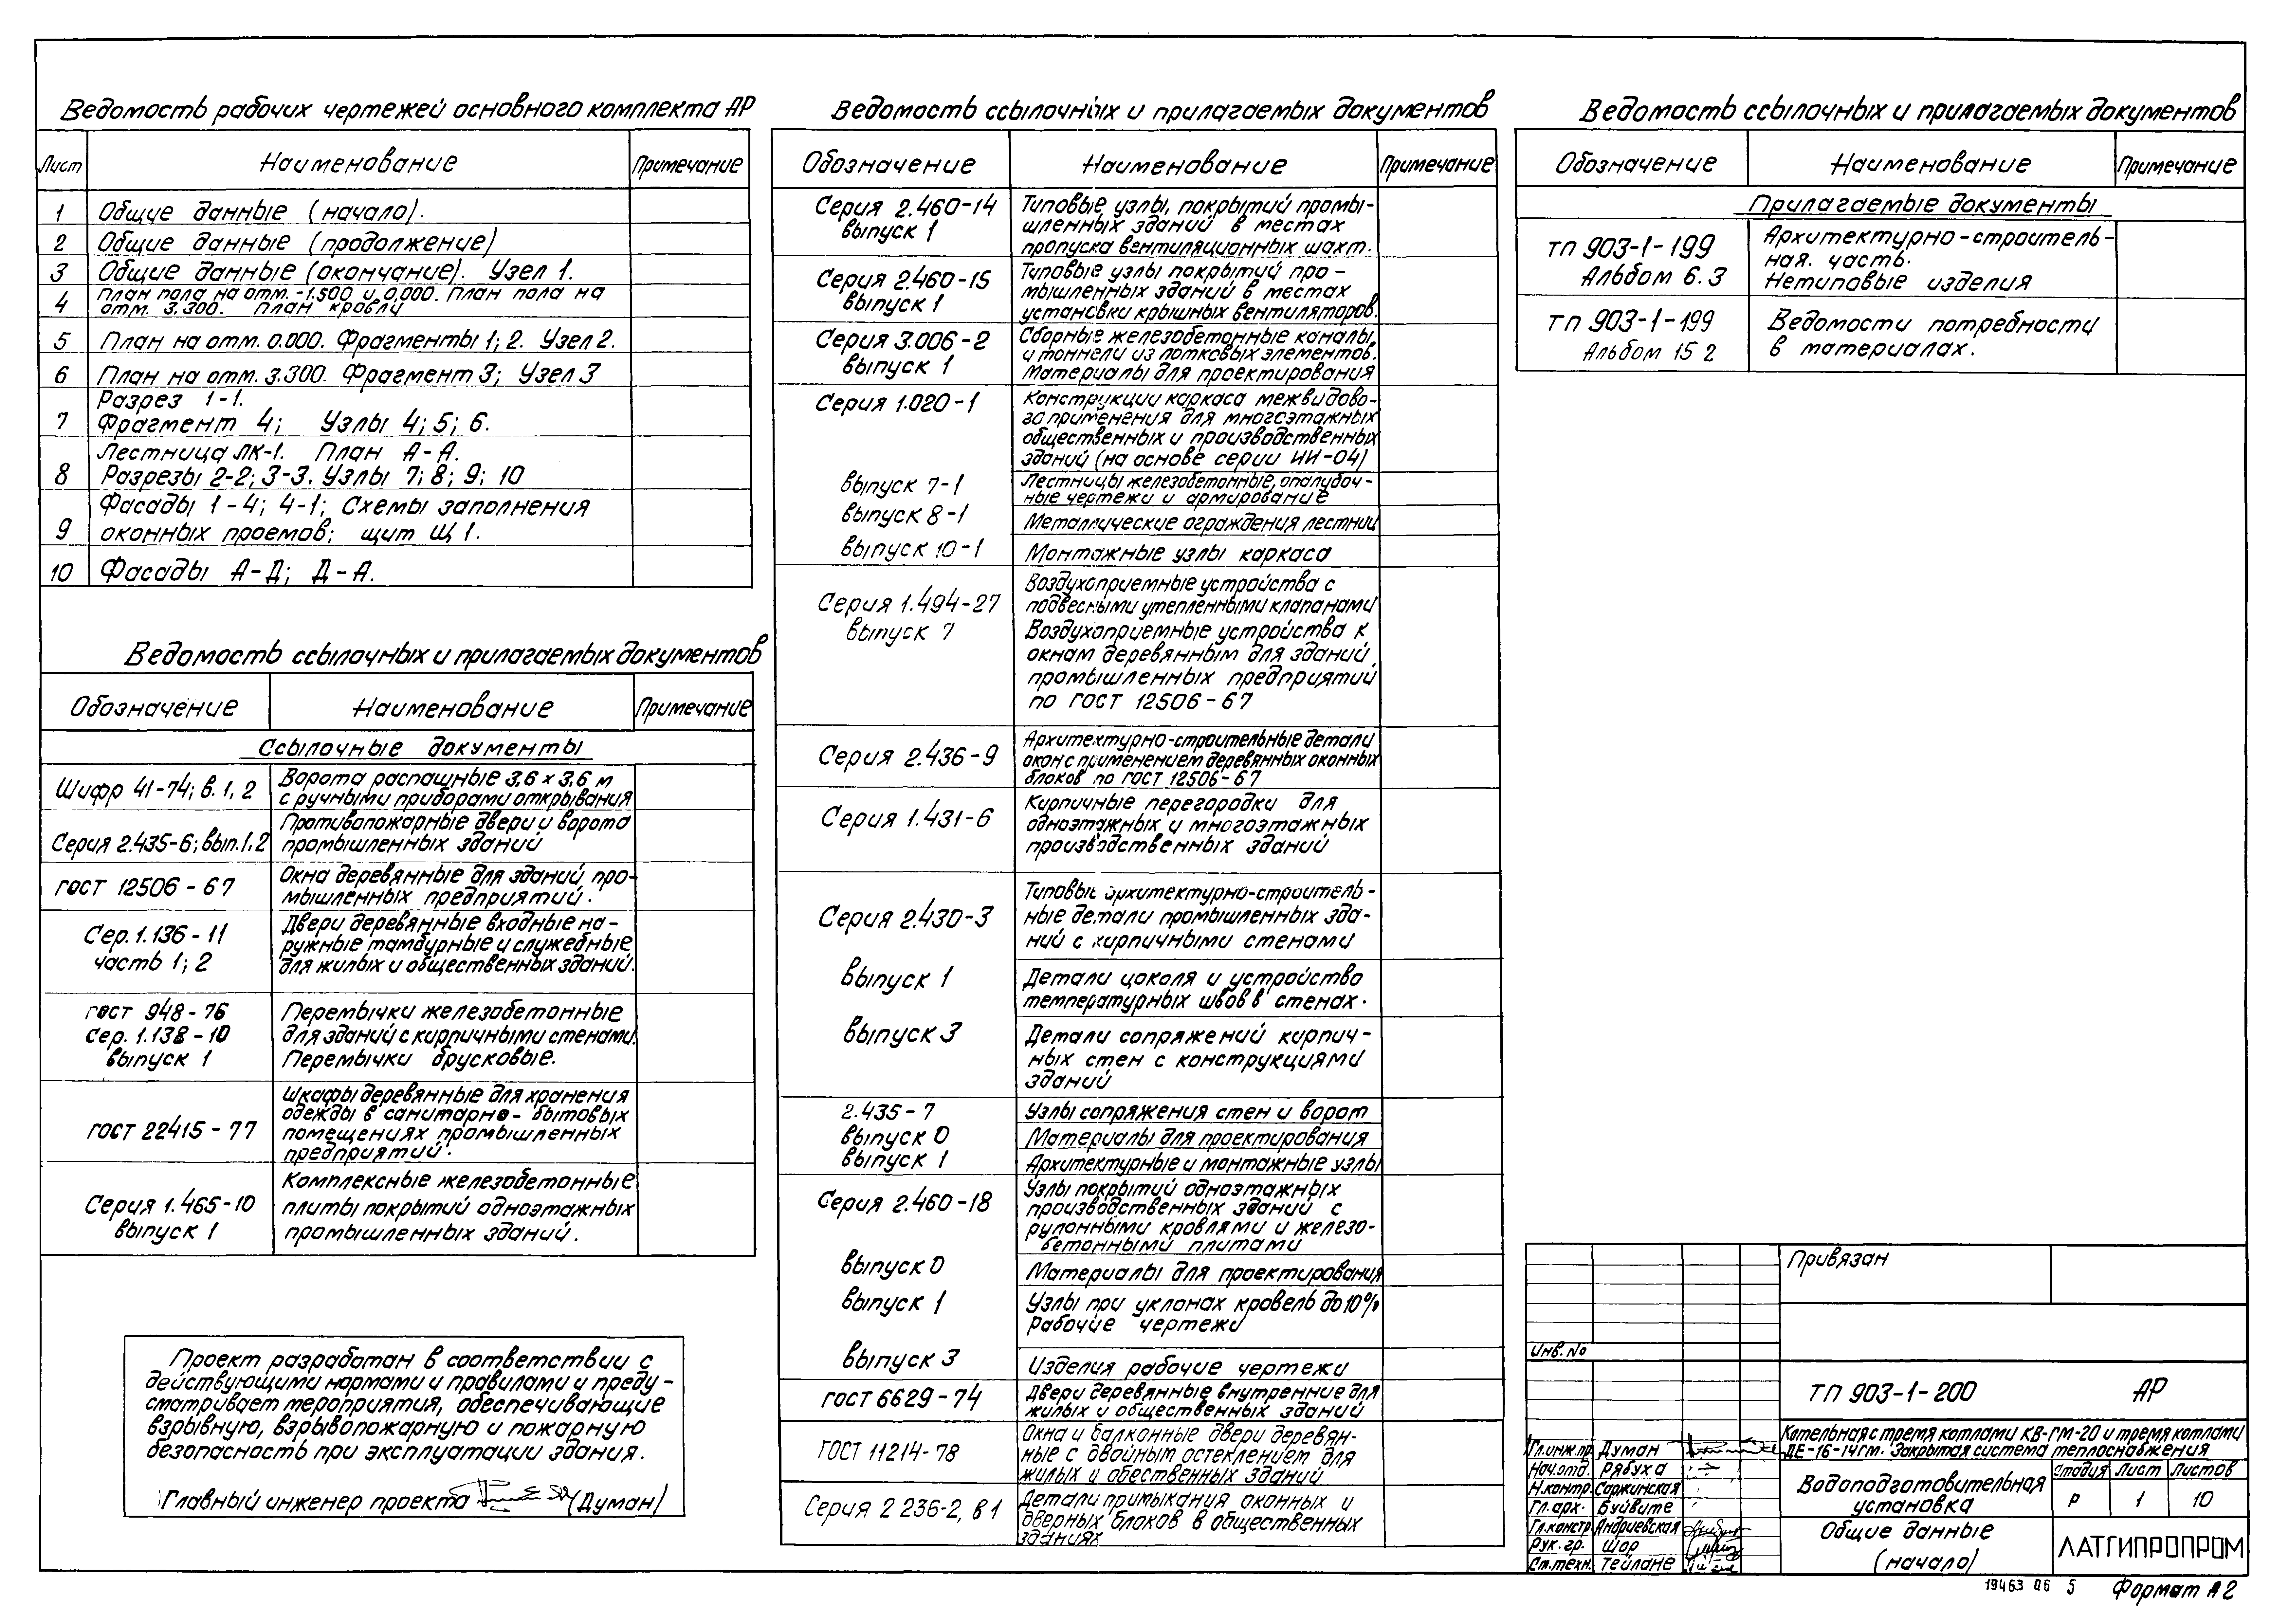 Ведомость рабочих чертежей основного комплекта АР
Лист Наименование Примечание
1 Общие данные (начало).
2 Общие данные (продолжение)
3 Общие данные (окончание). Узел 1.
4 План пола на отм. -1.500 и 0.000. План пола на
отм. 3.300. План кровли
5 План на отм. 0.000. Фрагменты 1; 2. Узел 2.
6 План на отм. 3.300. Фрагмент 3; Узел 3
Разрез 1-1.
7 Фрагмент 4; Узлы 4; 5; 6.
Лестница ЛК-1. План А-А.
8 Разрезы 2-2; 3-3. Узлы 7; 8; 9; 10
Фасады 1-4; 4-1; Схемы заполнения
9 оконных проемов; щит Щ1.
10 Фасады А-Д; Д-А.
Ведомость ссылочных и прилагаемых документов
Обозначение Наименование Примечание
Ссылочные документы
Шифр 41-74; в. 1, 2 Ворота распашные 3,6 х 3,6 м
с ручными приборами открывания
Противопожарные двери и ворота
Серия 2.435-6; вып. 1, 2 промышленных зданий
ГОСТ 12506-67 Окна деревянные для зданий про-
мышленных предприятий.
Сер. 1.136-11 Двери деревянные входные на-
часть 1; 2 ружные тамбурные и служебные
для жилых и общественных зданий.
ГОСТ 948-76 Перемычки железобетонные
Сер. 1.138-10 для зданий с кирпичными стенами.
выпуск 1 Перемычки брусковые.
Шкафы деревянные для хранения
одежды в санитарно-бытовых
ГОСТ 22415-77 помещениях промышленных
предприятий.
Комплексные железобетонные
Серия 1.465-10 плиты покрытий одноэтажных
выпуск 1 промышленных зданий.
Проект разработан в соответствии с
действующими нормами и правилами и преду-
сматривает мероприятия, обеспечивающие
взрывную, взрывопожарную и пожарную
безопасность при эксплуатации здания.
Главный инженер проекта (Думан)
Ведомость ссылочных и прилагаемых документов
Обозначение Наименование Примечание
Серия 2.460-14 Типовые узлы, покрытий промы-
выпуск 1 шленных зданий в местах
пропуска вентиляционных шахт.
Серия 2.460-15 Типовые узлы покрытий про-
выпуск 1 мышленных зданий в местах
установки крышных вентиляторов.
Серия 3.006-2 Сборные железобетонные каналы
выпуск 1 и тоннели из лотковых элементов.
Материалы для проектирования
Серия 1.020-1 Конструкции каркаса межвидово-
го применения для многоэтажных
общественных и производственных
зданий (на основе серии ИИ-04)
выпуск 7-1 Лестницы железобетонные, опалубоч-
ные чертежи и армирование
выпуск 8-1 Металлические ограждения лестниц
выпуск 10-1 Монтажные узлы каркаса
Воздухоприемные устройства с
Серия 1.494-27 подвесными утепленными клапанами
выпуск 7 Воздухоприемные устройства к
окнам деревянным для зданий
промышленных предприятий
по ГОСТ 12506-67
Серия 2.436-9 Архитектурно-строительные детали
окон с применением деревянных оконных
блоков по ГОСТ 12506-67
Серия 1.431-6 Кирпичные перегородки для
одноэтажных и многоэтажных
производственных зданий
Типовые архитектурно-строитель-
Серия 2.430-3 ные детали промышленных зда-
ний с кирпичными стенами
выпуск 1 Детали цоколя и устройство
температурных швов в стенах.
выпуск 3 Детали сопряжений кирпич-
ных стен с конструкциями
зданий
2.435-7 Узлы сопряжения стен и ворот
выпуск 0 Материалы для проектирования
выпуск 1 Архитектурные и монтажные узлы
Серия 2.460-18 Узлы покрытий одноэтажных
производственных зданий с
рулонными кровлями и железо-
бетонными плитами
выпуск 0 Материалы для проектирования
выпуск 1 Узлы при уклонах кровель до 10%
Рабочие чертежи
выпуск 3 Изделия рабочие чертежи
ГОСТ 6629-74 Двери деревянные внутренние для
жилых и общественных зданий
ГОСТ 11214-78 Окна и балконные двери деревян-
ные с двойным остеклением для
жилых и обественных зданий
Серия 2 236-2, в 1 Детали примыкания оконных и
дверных блоков в общественных
зданиях
Ведомость ссылочных и прилагаемых документов
Обозначение Наименование Примечание
Прилагаемые документы
ТП 903-1-199 Архитектурно-строитель-
Альбом 6.3 ная. часть.
Нетиповые изделия
ТП 903-1-199 Ведомости потребности
Альбом 15 2 в материалах.
Привязан
Инв. No
ТП 903-1-200 АР
Котельная с тремя котлами КВ-ГМ-20 и тремя котлами
ДЕ-16-14ГМ. Закрытая система теплоснабжения
Гл.инж.пр. Думан
Нач.отд. Рябуха
Н.контр. Саржинская
Гл.арх. Буйвите
Гл.констр. Андриевская
Рук. гр. Шор
Ст.техн. Тейлане
Водоподготовительная
установка
Стадия Лист Листов
Р 1 10
Общие данные
(начало)
ЛАТГИПРОПРОМ
19463 06 5 Формат А2